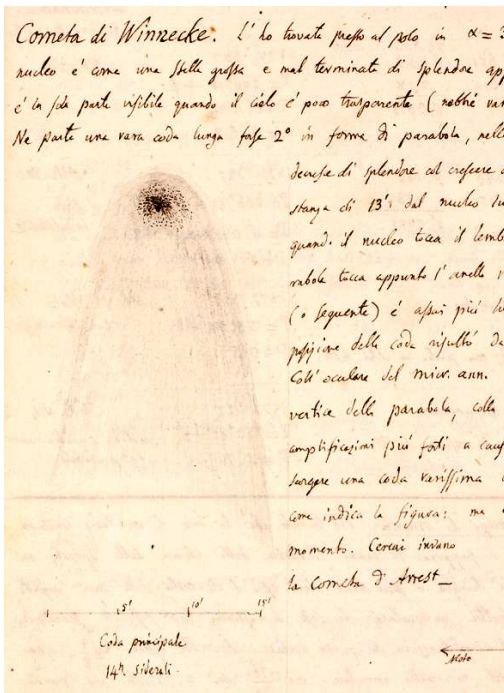 Cometa di Winnecke. L'ho trovata presto al polo in α =
nucleo é come una stella grossa e mal terminata di splendore app
é la sola parte visibile quando il cielo é poco trasparente (nebbie
Ne parte una rara coda lunga forse 2° in forma di parabola, nell
di splendore col crescere
stanza di 13' dal nucleo
quando il nucleo tocca il lembo
rabola tocca appunto l'anello
(o seguente) é assai piú
posizione della coda risultó da
Coll' oculare del micr. ann.
vertice della parabola, colle
amplificazioni piú forti a caus
sorgere una coda rarissima
come indica la figura: ma
momento. Cercai invano
la cometa d'Arrest_
5' 10' 15'
Coda principale
14h siderali.
Moto